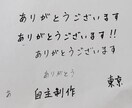 ありがとうございます
ありがとうございます!!
ありがとうございます
ありがとう
自主制作 東京